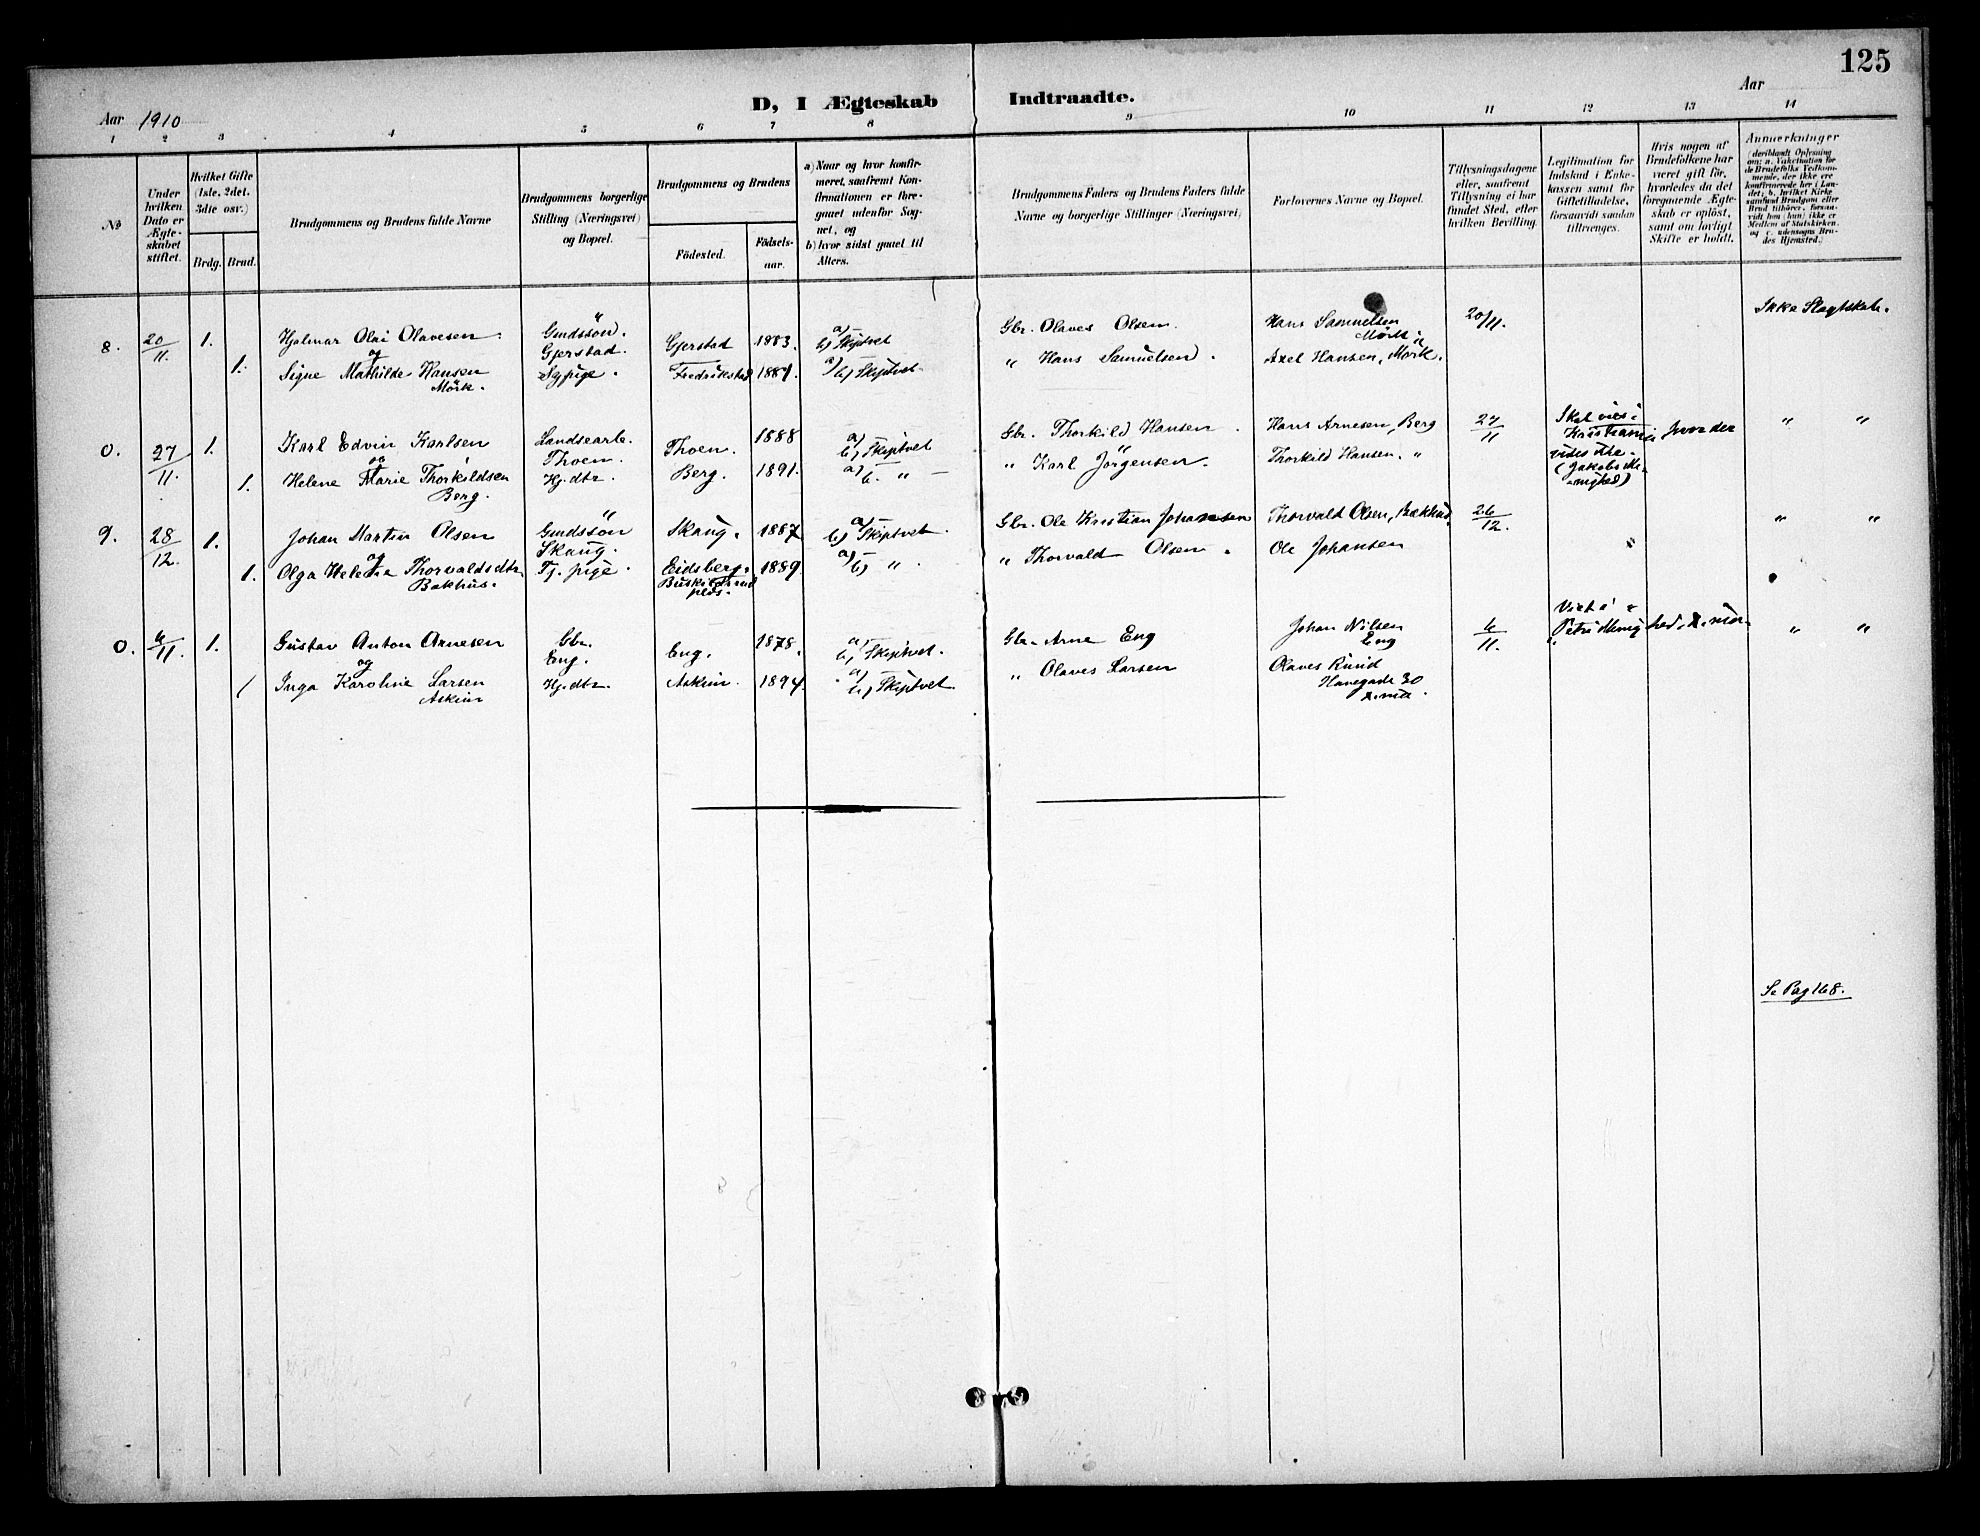 125
D, I Ægteskab Indtraadte.
Aar 1910
Aar
1 2 3 4 5 6 7 8 9 10 11 12 13 14
No
Under hvilken Dato er Ægteskabet stiftet.
Hvilket Gifte (1ste, 2det, 3die osv.)
Brdg. Brud.
Brudgommens og Brudens fulde Navne
Brudgommens borgerlige Stilling (Næringsvei) og Bopæl.
Brudgommens og Brudens
Födested. Födselsaar.
a) Naar og hvor konfirmeret, saafremt Konfirmationen er foregaaet udenfor Sognet, og
b) hvor sidst gaaet til Alters.
Brudgommens Faders og Brudens Faders fulde Navne og borgerlige Stillinger (Næringsvei)
Forlovernes Navne og Bopæl.
Tillysningsdagene eller, saafremt Tillysning ei har fundet Sted, efter hvilken Bevilling.
Legitimation for Indskud i Enkekassen samt for Giftetilladelse, forsaavidt saadan tiltrænges.
Hvis nogen af Brudefolkene har været gift för, hvorledes da det foregaaende Ægteskab er oplöst, samt om lovligt Skifte er holdt.
Anmerkninger
(deriblandt Oplysning om: a. Vakcination for de Brudefolks Vedkommende, der ikke ere konfirmerede her i Landet; b. hvilket Kirkesamfund Brudgom eller Brud tilhörer, forsaavidt han (hun) ikke er Medlem af Statskirken, og c. udensogns Brudes Hjemsted.)
8. 20/11. 1. Hjalmar Olai Olavesen Gmdssön. Gjerstad. Gjerstad 1883. a) b) Skiptvet Gbr. Olaves Olsen. Hans Samuelsen Mörk 20/11. Ikke Slegtskab.
og
1. Signe Mathilde Hansen Mörk. Sypige. Fredrikstad 1887. a) b) Skiptvet " Hans Samuelsen. Axel Hansen, Mörk.
0. 27/11. 1. Karl Edvin Karlsen Landsearb. Thoen. Thoen. 1888 a) b) Skiptvet Gbr. Thorkild Hansen. Hans Arnesen, Berg 27/11 Skal vies i Kristiania hvor de vides ude. (Jakobs Menighed) " "
og
1. Helene Marie Thorkildsen Berg. Hj.dtr. Berg. 1891. a) b. " " Karl Jörgensen. Thorkild Hansen. "
9. 28/12. 1. Johan Martin Olsen Gmdssön Skaug. Skaug. 1887 a) b) Skiptvet. Gbr. Ole Kristian Johansen Thorvald Olsen, Bækhus. 26/12. " "
og
1. Olga Helene Thorvaldsdtr. Bakhus. Tj. pige. Eidsberg. 1889. a) b) " " Thorvald Olsen. Ole Johansen
0. 6/11. 1. Gustav Anton Arnesen Gbr. Eng. Eng. 1878. a) b) Skiptvet. Gbr. Arne Eng Johan Nilsen Eng 6/11. Viet i Petri Menighed, " "
og
1 Inga Karoline Larsen Askim Hj.dtr. Askim. 1894. a) b) Skiptvet. " Olaves Larsen Olaves Ruud Havegade 30
Se Pag 168.